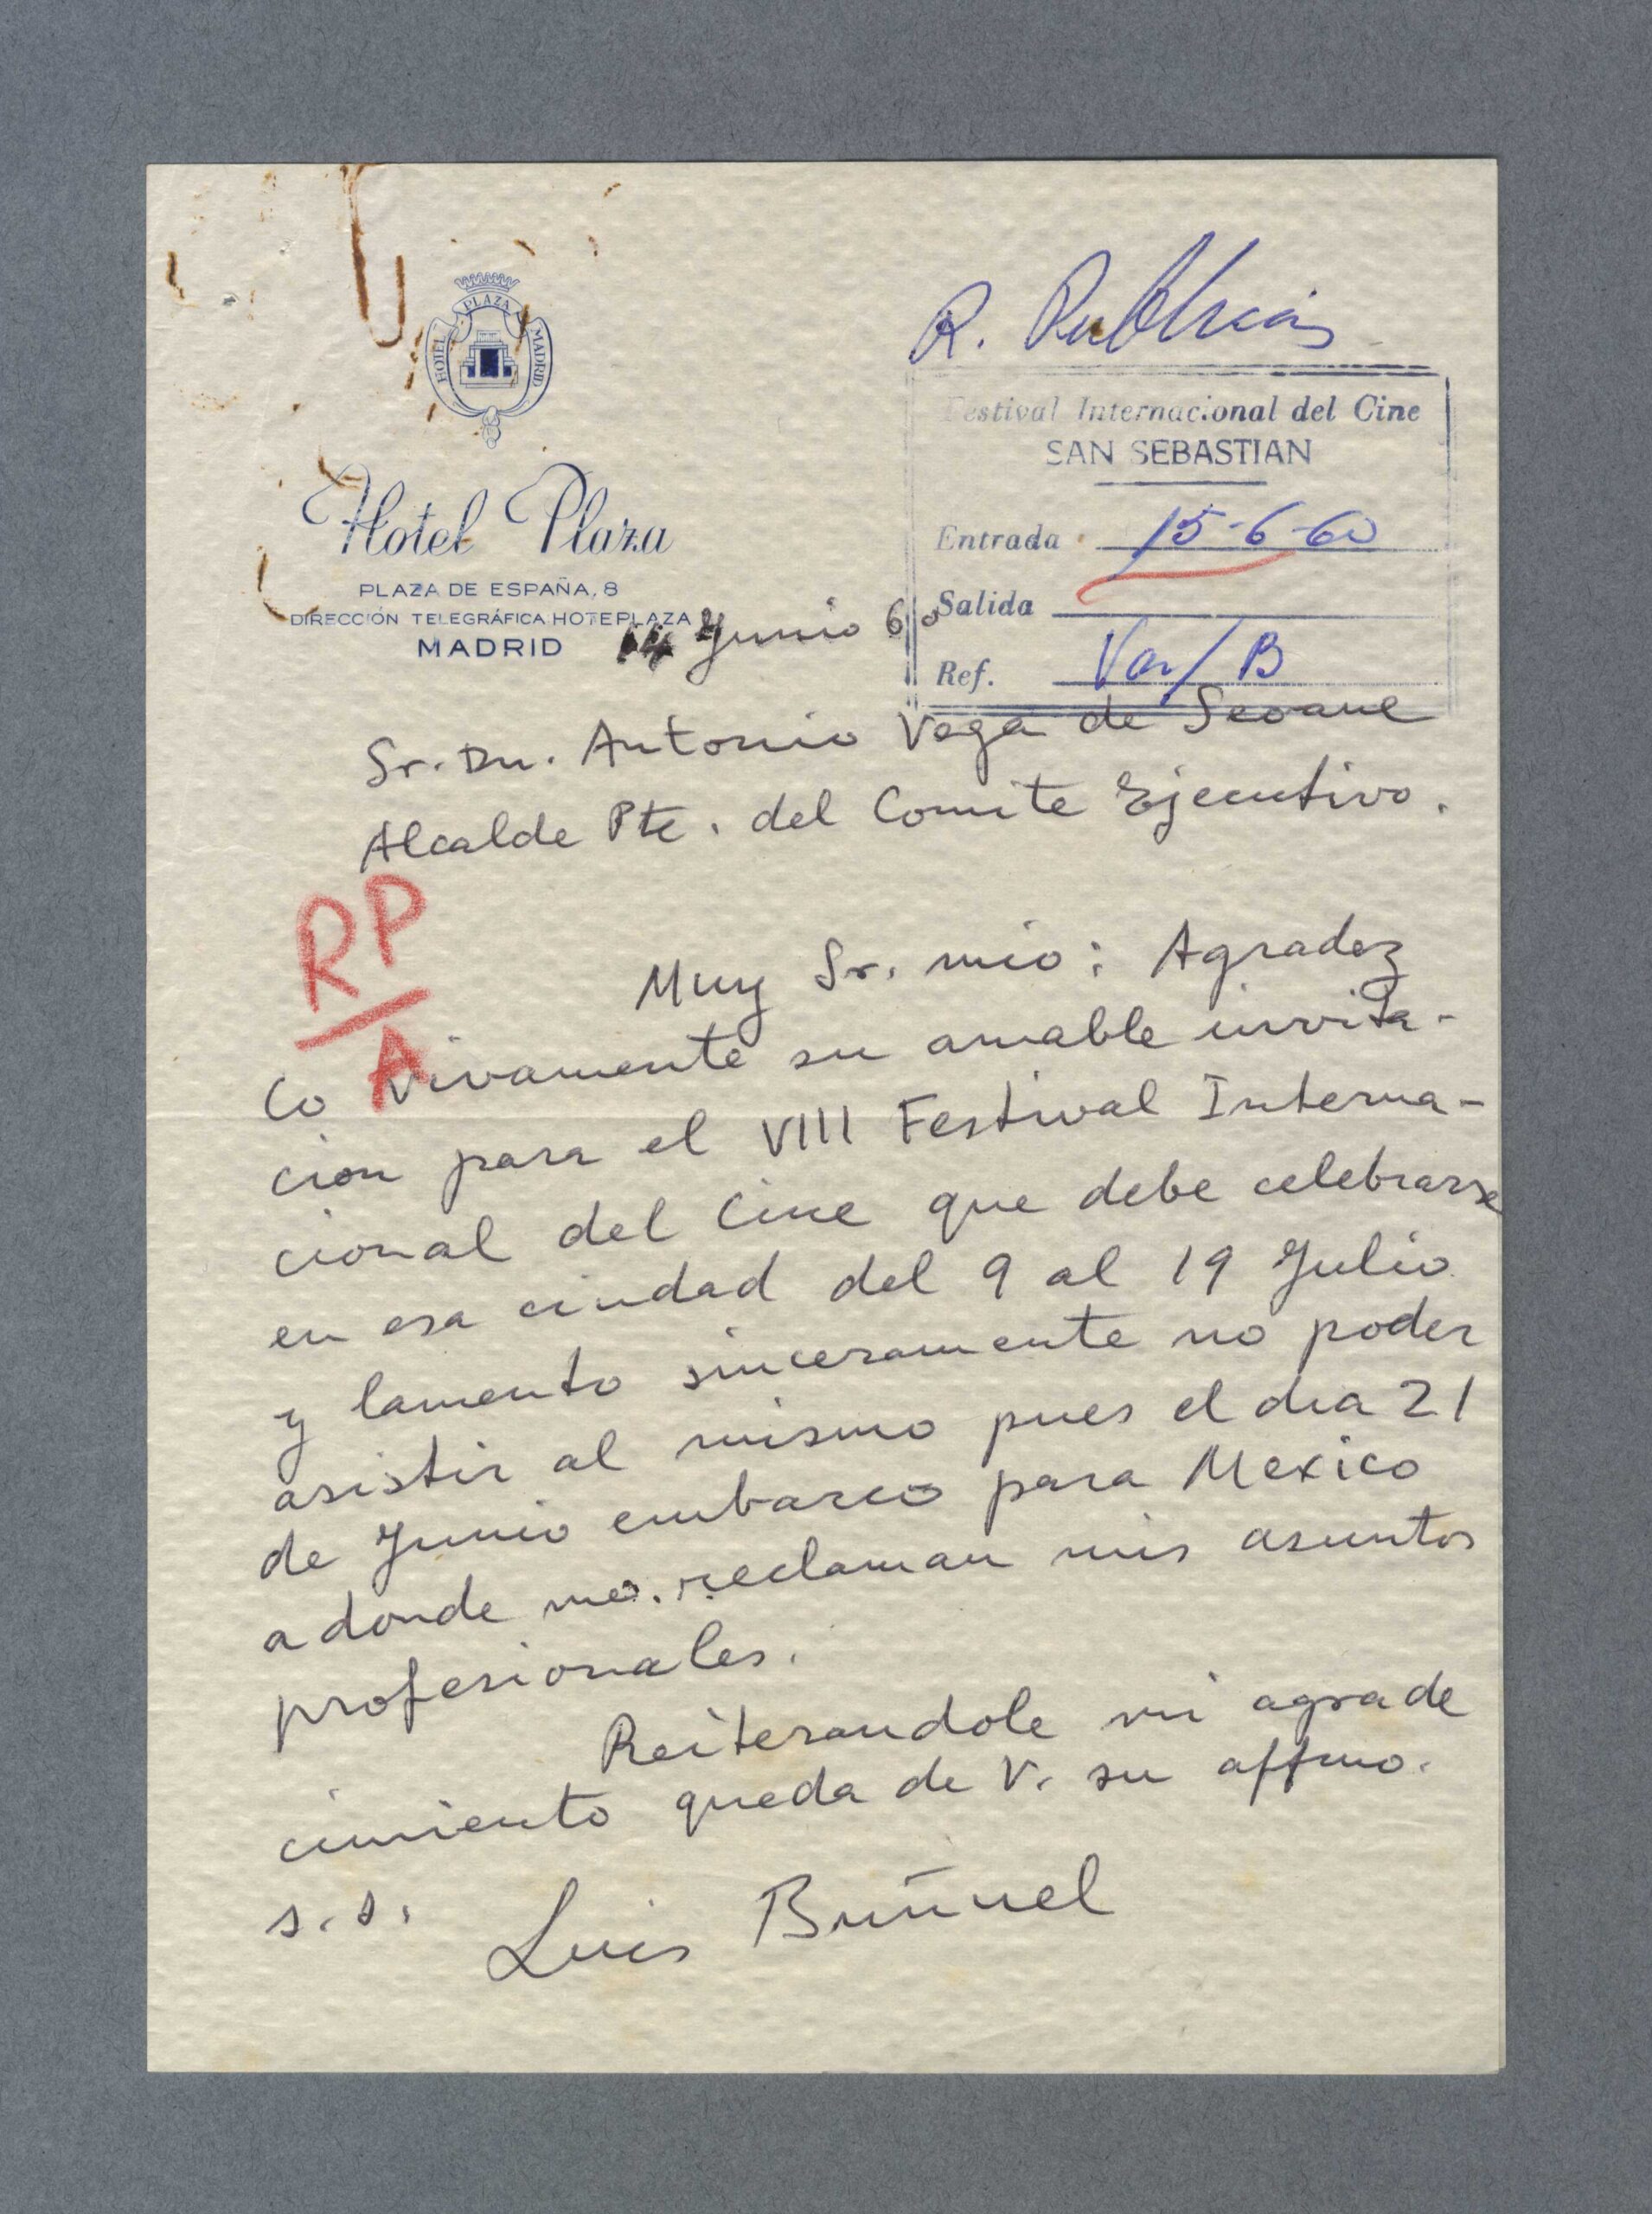 HOTEL PLAZA MADRID
Hotel Plaza
PLAZA DE ESPAÑA, 8
DIRECCIÓN TELEGRÁFICA HOTEPLAZA
MADRID
R. Publicas
Festival Internacional del Cine
SAN SEBASTIAN
Entrada 15-6-60
Salida
Ref. Var/B
14 Junio 60
Sr. Dn. Antonio Vega de Seoane
Alcalde Pte. del Comite Ejecutivo.
RP
A
Muy Sr. mio: Agradez
co vivamente su amable invita-
cion para el VIII Festival Interna-
cional del Cine que debe celebrarse
en esa ciudad del 9 al 19 Julio
y lamento sinceramente no poder
asistir al mismo pues el dia 21
de Junio embarco para Mexico
a donde me reclaman mis asuntos
profesionales.
Reiterandole mi agrade
cimiento queda de V. su affmo.
s.s.
Luis Buñuel